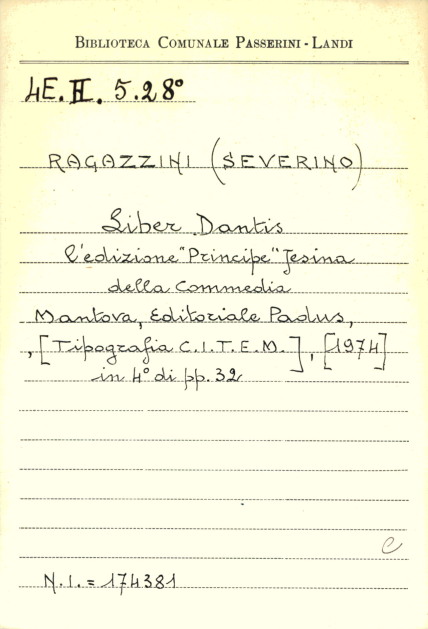 BIBLIOTECA COMUNALE PASSERINI - LANDI
4E. II. 5.28°
RAGAZZINI (SEVERINO)
Liber Dantis
l'edizione "Principe" Jesina
della Commedia
Mantova, Editoriale Padus,
, [Tipografia C.I.T.E.M.], [1974]
in 4° di pp. 32
e
N.I. = 174381